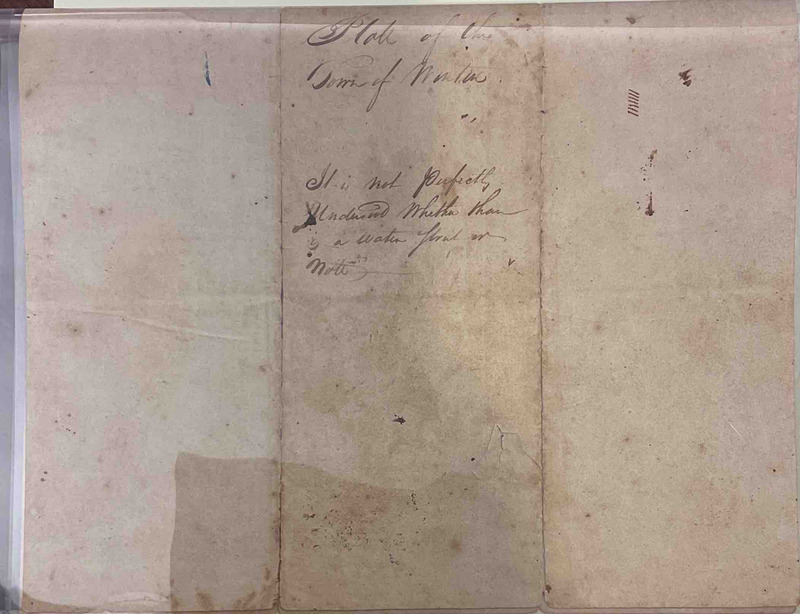 Platt of the
Town of
It is not Perfectly
Understood Whether thare
is a water frunt or
Nott